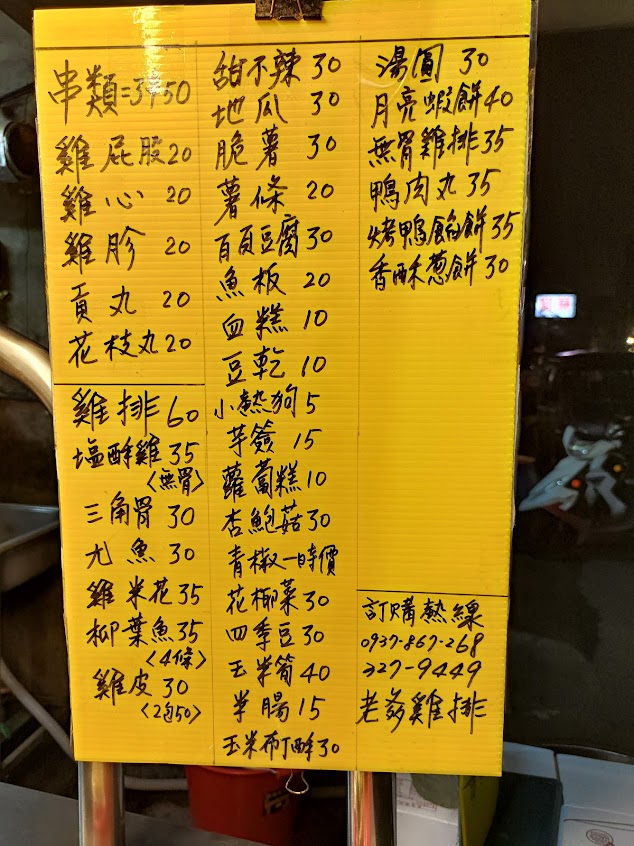 串類=3個50
雞屁股20
雞心 20
雞胗 20
貢丸 20
花枝丸20
雞排60
塩酥雞35
<無骨>
三角骨 30
尤魚 30
雞米花35
柳葉魚35
<4條>
雞皮 30
<2包50>
甜不辣 30
地瓜 30
脆薯 30
薯條 20
百頁豆腐30
魚板 20
血糕 10
豆乾 10
小熱狗 5
芋簽 15
蘿蔔糕10
杏鮑菇30
青椒一時價
花椰菜30
四季豆30
玉米筍40
米腸15
玉米布丁酥30
湯圓 30
月亮蝦餅40
無骨雞排35
鴨肉丸 35
烤鴨餡餅35
香酥蔥餅30
訂購熱線
0937-867-268
327-9449
老爹雞排